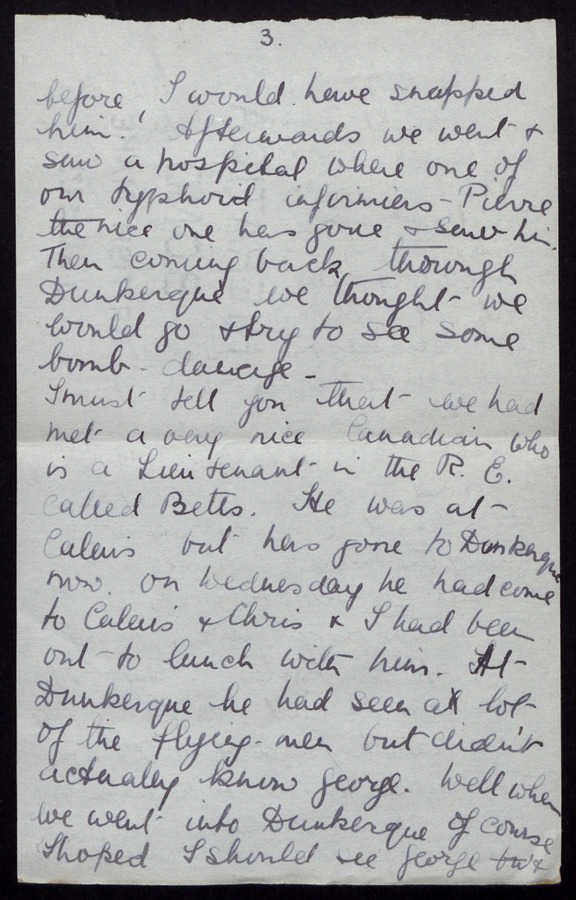 3.
before, I would have snapped
him! Afterwards we went &
saw a hospital where one of
our typhoid infirmiers - Pierre
the nice one has gone & saw him.
Then coming back through
Dunkerque we thought we
would go & try to see some
bomb-damage -
I must tell you that we had
met a very nice Canadian who
is a Lieutenant in the R. E.
called Betts. He was at
Calais but has gone to Dunkerque
now. On Wednesday he had come
to Calais & Chris & I had been
out to lunch with him. At
Dunkerque he had seen a lot
of the flying-men but didn't
actually know George. Well when
we went into Dunkerque of course
I hoped I should see George but